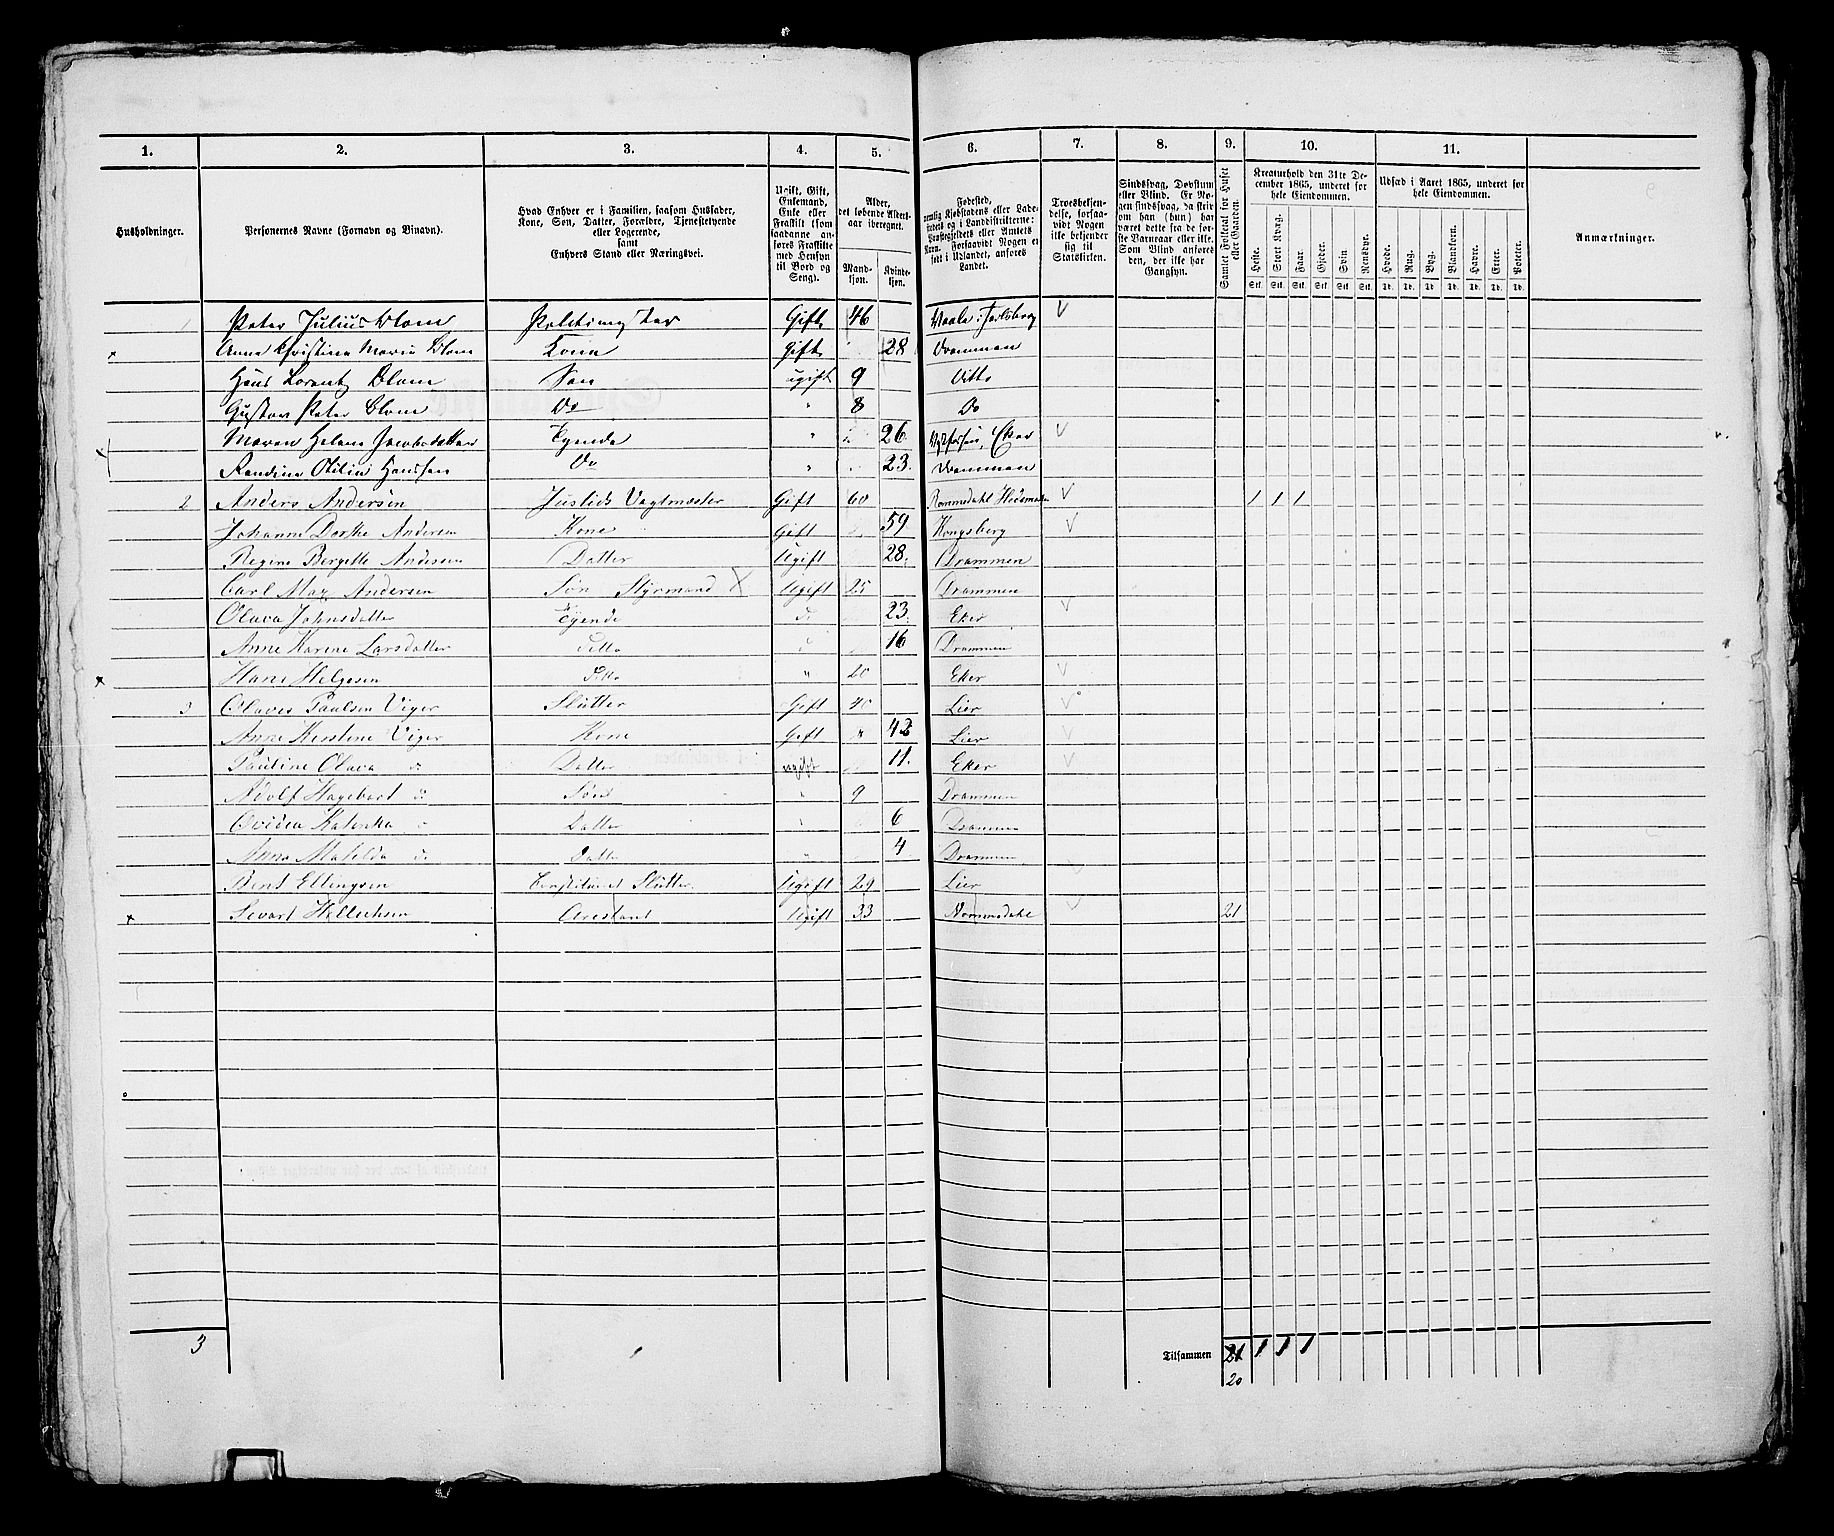 1. 2. 3. 4. 5. 6. 7. 8. 9. 10. 11.
Husholdninger.
Personernes Navne (Fornavn og Binavn).
Hvad Enhver er i Familien, saasom Husfader, Kone, Søn, Datter, Forældre, Tjenestetyende eller Logerende, samt Enhvers Stand eller Næringsvei.
Ugift, Gift, Enkemand, Enke eller Fraskilt (som saadanne anføres Fraskilte med Hensyn til Bord og Seng).
Alder, det løbende Aldersaar iberegnet.
Mandkjøn. Kvindekjøn.
Fødested, nemlig Kjøbstadens eller Ladestedets og i Landdistrikterne: Præstegjeldets eller Amtets Navn. Forsaavidt Nogen er født i Udlandet, anføres Landet.
Troesbekjendelse, forsaavidt Nogen ikke bekjender sig til Statskirken.
Sindssvag, Døvstum eller Blind. Er Nogen sindssvag, da skrives om han (hun) har været dette fra de første Barneaar eller ikke. Som Blind anføres den, der ikke har Gangsyn.
Samlet Folketal for Huset eller Gaarden.
Kreaturhold den 31te December 1865, underet for hele Eiendommen.
Heste. Stort Kvæg. Faar. Gjeder. Svin Rensdyr.
Stk. Stk. Stk. Stk. Stk. Stk.
Udsæd i Aaret 1865, underet for hele Eiendommen.
Hvede. Rug. Byg. Blandkorn. Havre. Erter. Poteter.
Td. Td. Td. Td. Td. Td. Td.
Anmærkninger.
1 Peter Julius Blom Politimester Gift 46 Vaale i Jarlsberg
Anna Christina Maria Blom Kone Gift 28 Drammen
Hans Lorentz Blom Søn ugift 9 Ditto
Gustav Peter Blom Do " 8 Do
Maren Helene Jacobsdatter Tyende " 26 Eker
Randine Otilia Hansen Do " 23. Drammen
2 Anders Andersen Justids Vagtmester Gift 60 Rommedahl 1 1 1
Johanne Dorthe Andersen Kone Gift 59 Kongsberg
Regine Bergette Andersen Datter Ugift 28. Drammen
Carl Max Andersen Søn Styrmand Ugift 25 Drammen
Olava Johnsdatter Tyende d 23. Eker
Anne Karine Larsdatter ditto d 16 Drammen
Hans Helgesen ditto " 20 Eker
3 Olaves Paulsen Viger Slutter Gift 40 Lier
Anne Kirstine Viger Kone Gift " 42 Lier
Pauline Olava do Datter ugift 11. Eker
Adolf Hagebart do Søn " 9 Drammen
Ovidea Katinka do Datter " 6 Drammen
Anna Matilda do Datter " 4 Drammen
Bent Ellingsen Constitueret Slutter Ugift 29 Lier
Sivart Hellechsen Arestant Ugift 33 Nommedahl 21
3
Tilsammen 21 1 1 1
20